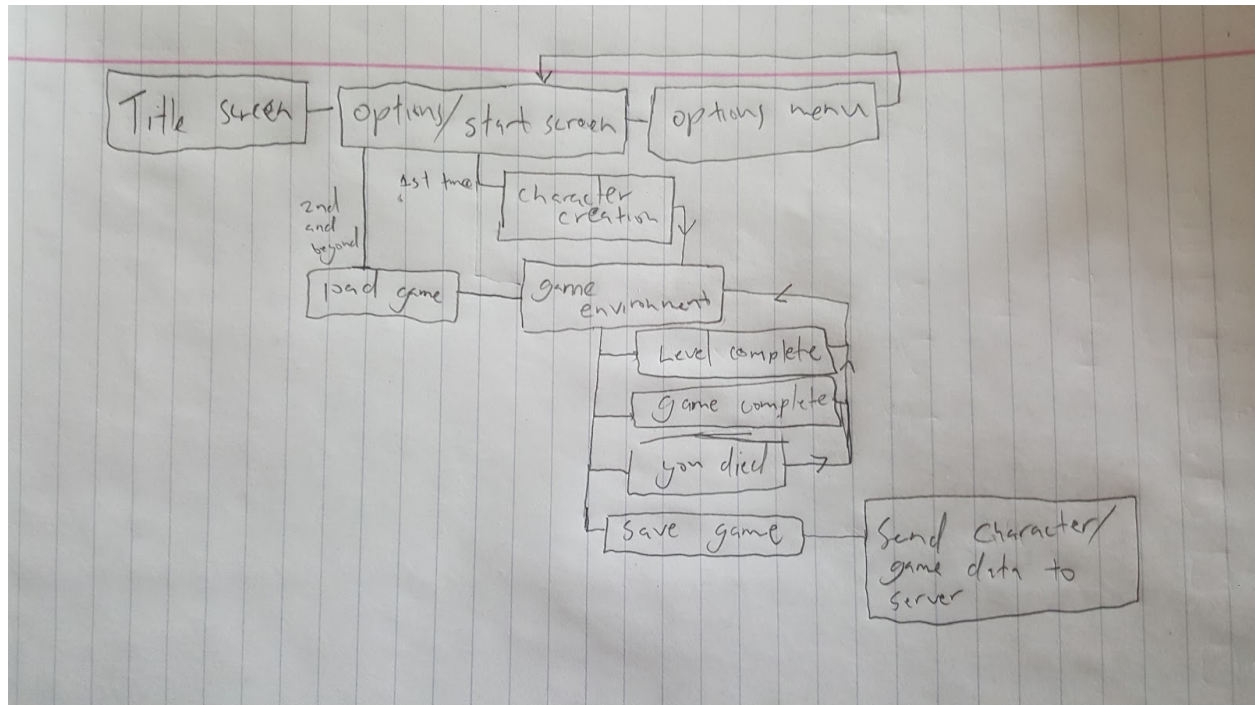 Title screen
options/start screen
options menu
1st time
character
creation
2nd
and
beyond
load game
game
environment
Level complete
game complete
you died
save game
Send character/
game data to
server